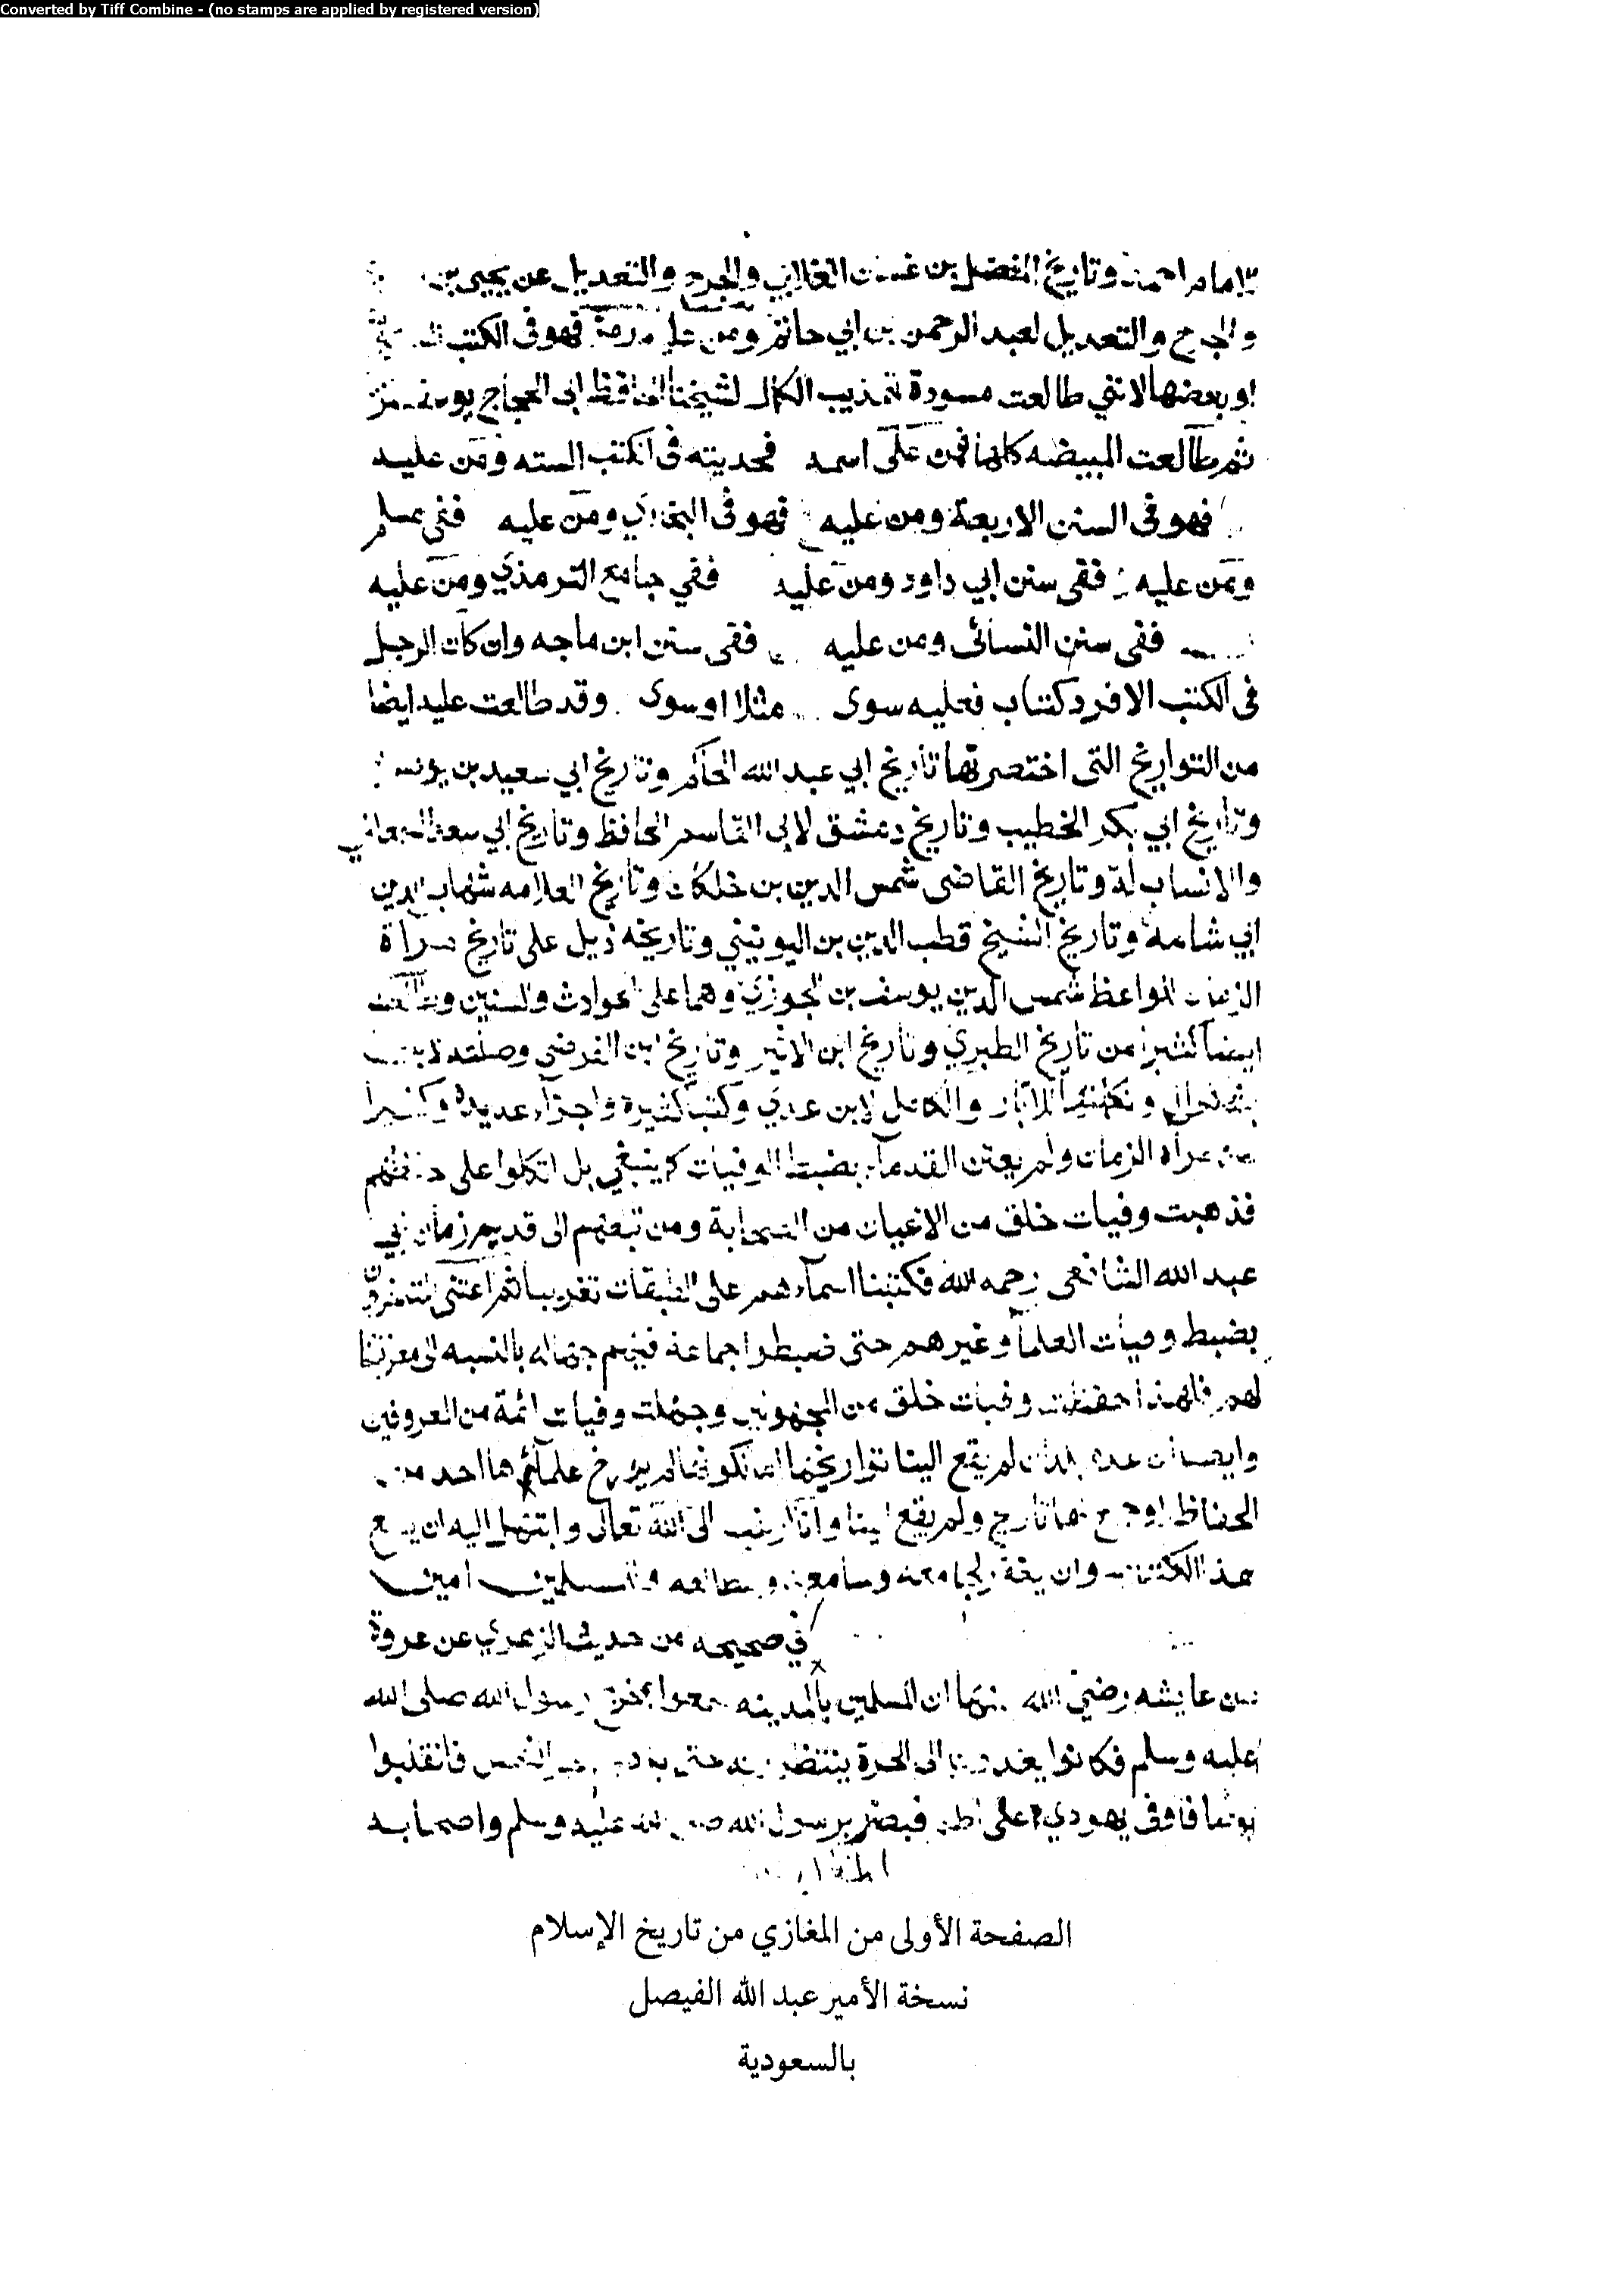 Converted by Tiff Combine - (no stamps are applied by registered version)
وتاريخ المفضل بن غسان الغلابي والجرح والتعديل عن يحيى بن
والجرح والتعديل لعبد الرحمن بن ابي حاتم ومن عليه رمز فهو في الكتب
او بعضها لانني طالعت مسودة تهذيب الكمال لشيخنا الحافظ ابي الحجاج يوسف
ثم طالعت المبيضه كلها فمن على اسمه فحديثه في الكتب السته ومن عليه
فهو في السنن الاربعة ومن عليه فهو في البخاري ومن عليه ففي مسلم
ومن عليه ففي سنن ابي داود ومن عليه ففي جامع الترمذي ومن عليه
ففي سنن النسائي ومن عليه ففي سنن ابن ماجه وان كان الرجل
في الكتب الا فرد كتاب فعليه سوى مثلا او سوى وقد طالعت عليه ايضا
من التواريخ التي اختصرتها تاريخ ابي عبد الله الحاكم وتاريخ ابي سعيد بن يونس
وتاريخ ابي بكر الخطيب وتاريخ دمشق لابي القاسم الحافظ وتاريخ ابي سعد السمعاني
والانساب له وتاريخ القاضي شمس الدين بن خلكان وتاريخ العلامه شهاب الدين
ابي شامة وتاريخ الشيخ قطب الدين بن اليونيني وتاريخه ذيل على تاريخ مرآة
الزمان للواعظ شمس الدين يوسف بن الجوزي وهما على الحوادث والسنين وطالعت
ايضا كثيرا من تاريخ الطبري وتاريخ ابن الاثير وتاريخ ابن الفرضي وصلته لابن
بشكوال وتكملتها للابار والكامل لابن عدي وكتبا كثيرة واجزاء عديدة وكثيرا
من مرآة الزمان ولم يعتن القدماء بضبط الوفيات كما ينبغي بل اتكلوا على حفظهم
فذهبت وفيات خلق من الاعيان من الصحابة ومن تبعهم الى قديم زمان ابي
عبد الله الشافعي رحمه الله فكتبنا اسماءهم على الطبقات تقريبا ثم اعتنى المتأخرون
بضبط وفيات العلماء وغيرهم حتى ضبطوا جماعة فيهم جهالة بالنسبه الى معرفتنا
لهم فلهذا حفظت وفيات خلق من المجهولين وجهلت وفيات ائمة من المعروفين
وايضا فان عدة بلدان لم يقع الينا تواريخها اما لكونها لم يؤرخ علمائها احد من
الحفاظ او جمع لها تاريخ ولم يقع الينا وانا ارغب الى الله تعالى وابتهل اليه ان ينفع
بهذا الكتاب وان يغفر لجامعه وسامعه ومطالعه وللمسلمين امين
في صحيحه من حديث الزهري عن عروة
عن عايشه رضي الله عنها ان المسلمين بالمدينه سمعوا بمخرج رسول الله صلى الله
عليه وسلم فكانوا يغدون الى الحرة ينتظرونه حتى يردهم حر الشمس فانقلبوا
يوما فاوفى يهودي على اطم فبصر برسول الله صلى الله عليه وسلم واصحابه
الصفحة الأولى من المغازي من تاريخ الإسلام
نسخة الأمير عبد الله الفيصل
بالسعودية